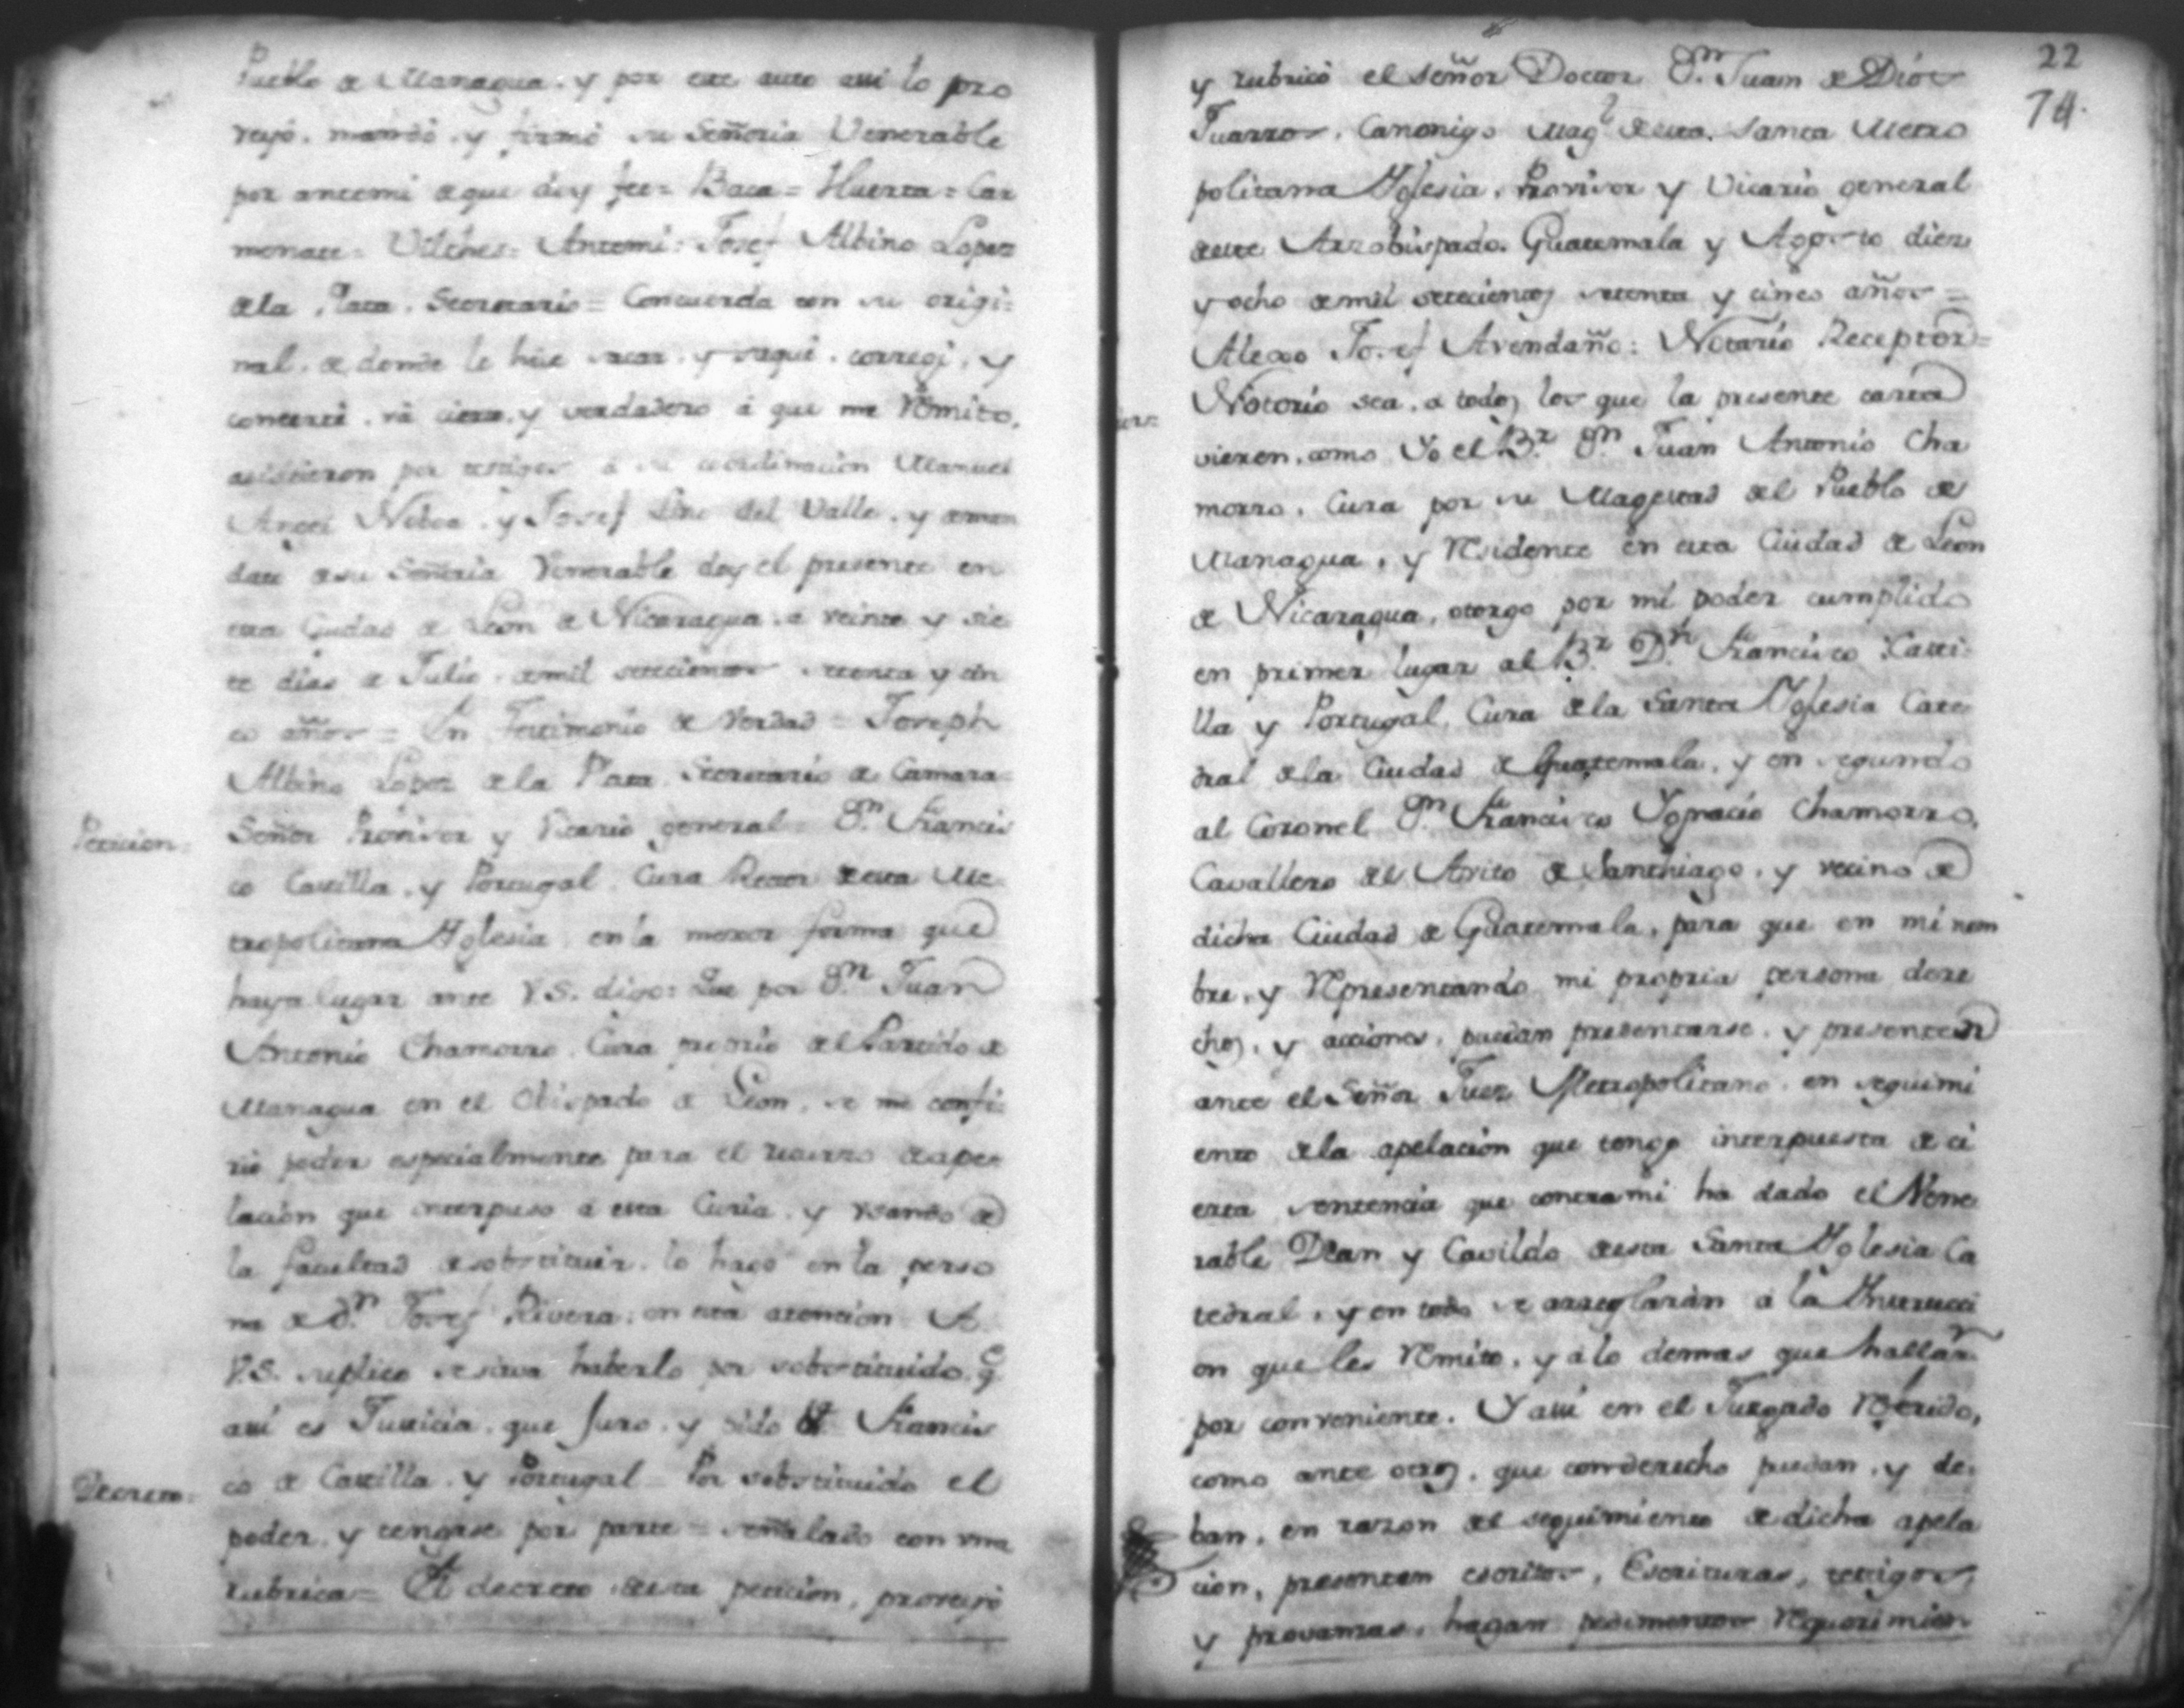 Pueblo de Managua. y por este auto assi lo pro
veyó. mandó. y firmó su Señoria Venerable
por antemi deque doy fee= Baca= Huerta= Car
menate= Vilches= Antemi= Josef Albino Lopez
dela Plata. Secretario= Concuerda con su origi=
nal. de donde le hize sacar. y saqué. corregi. y
concerté. vá cierto. y verdadero á que me Remito.
asistieron por testigos á su coordinacion Manuel
Angel y Josef Lino del Valle. y deman
dato desu Señoria Venerable doy el presente en
esta Ciudad de Leon de Nicaragua. á veinte y sie
te dias de Julio. demil setecientos setenta y cin
co años= En testimonio de Verdad= Joseph
Albino Lopez dela Plata. Secretario de Camara=
Peticion=
Señor Provisor y Vicario general= Dn. Francis
co Castilla. y Portugal. Cura Rector desta Me
tropolitana Yglesia. en la mexor forma que
haya lugar ante V.S. digo: Que por Dn. Juan
Antonio Chamorro. Cura proprio del Partido de
Managua en el Obispado de Leon. se me confi=
rió poder especialmente para el recurso deape=
lacion que interpuso á esta Curia. y vsando de
la facultad desobstituir. lo hago en la perso
na de Dn. Josef Rivera; en esta atencion A
V.S. suplico se sirva haberlo por sobstituido. q̃
assi es Justicia. que Juro. y pido Francis
co de Castilla. y Portugal= Por sobstituido el
Decreto=
poder. y tengase por parte= señalado con vna
rubrica= El decreto desta peticion, proveyó
22
74.
y rubricó el señor Doctor Dn. Juan de Dios
Juarros. Canonigo Magl. desta. Santa Metro
politana Yglesia. Provisor y Vicario general
deste Arzobispado. Guatemala y Agosto diez
y ocho demil setecientos setenta y cinco años=
Alexo Josef Avendaño: Notario Receptor=
Notorio sea. a todos los que la presente carta
vieren. como Yo el Br. Dn. Juan Antonio Cha
morro. Cura por su Magestad del Pueblo de
Managua. y Residente en esta Ciudad de Leon
de Nicaragua, otorgo por mi poder cumplido
en primer lugar al Br. Dn. Francisco Casti=
lla y Portugal. Cura dela Santa Yglesia Cate
dral dela Ciudad de Guatemala. y en segundo
al Coronel Dn. Francisco Ygnacio Chamorro.
Cavallero del Avito de Santhiago. y vecino de
dicha Ciudad de Guatemala, para que en mi nom
bre, y Representando mi propria persona dere
chos, y acciones, puedan presentarse. y presenten
ante el Señor Juez Metropolitano. en seguimi
ento dela apelacion que tengo interpuesta de ci
erta sentencia que contrami ha dado el Vene
rable Dean y Cavildo desta Santa Yglesia Ca
tedral, y en todo se arreglarán á la Ynstrucci
on que les Remito. y á lo demas que hallarn
por conveniente. Y assi en el Juzgado Referido,
como ante otros. que conderecho puedan. y de=
ban. en razon del seguimiento de dicha apela
cion, presenten escritos, Escrituras, testigos,
y provanzas. hagan pedimentos Requerimien